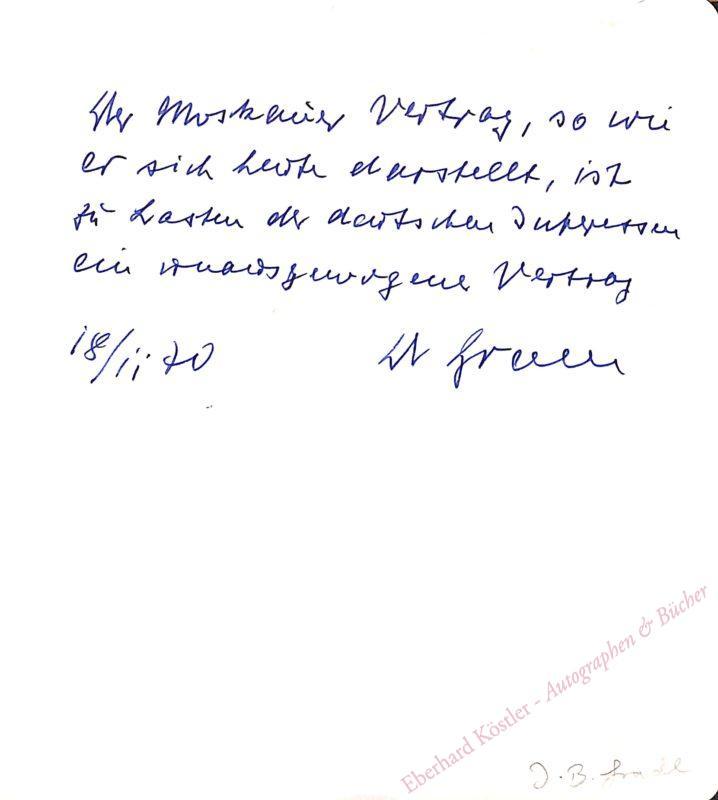 Der Moskauer Vertrag, so wie
er sich heute darstellt, ist
zu Lasten der deutschen Interessen
ein unausgewogener Vertrag
18/11 70
Eberhard Köstler - Autographen & Bücher
J. B. Gradl